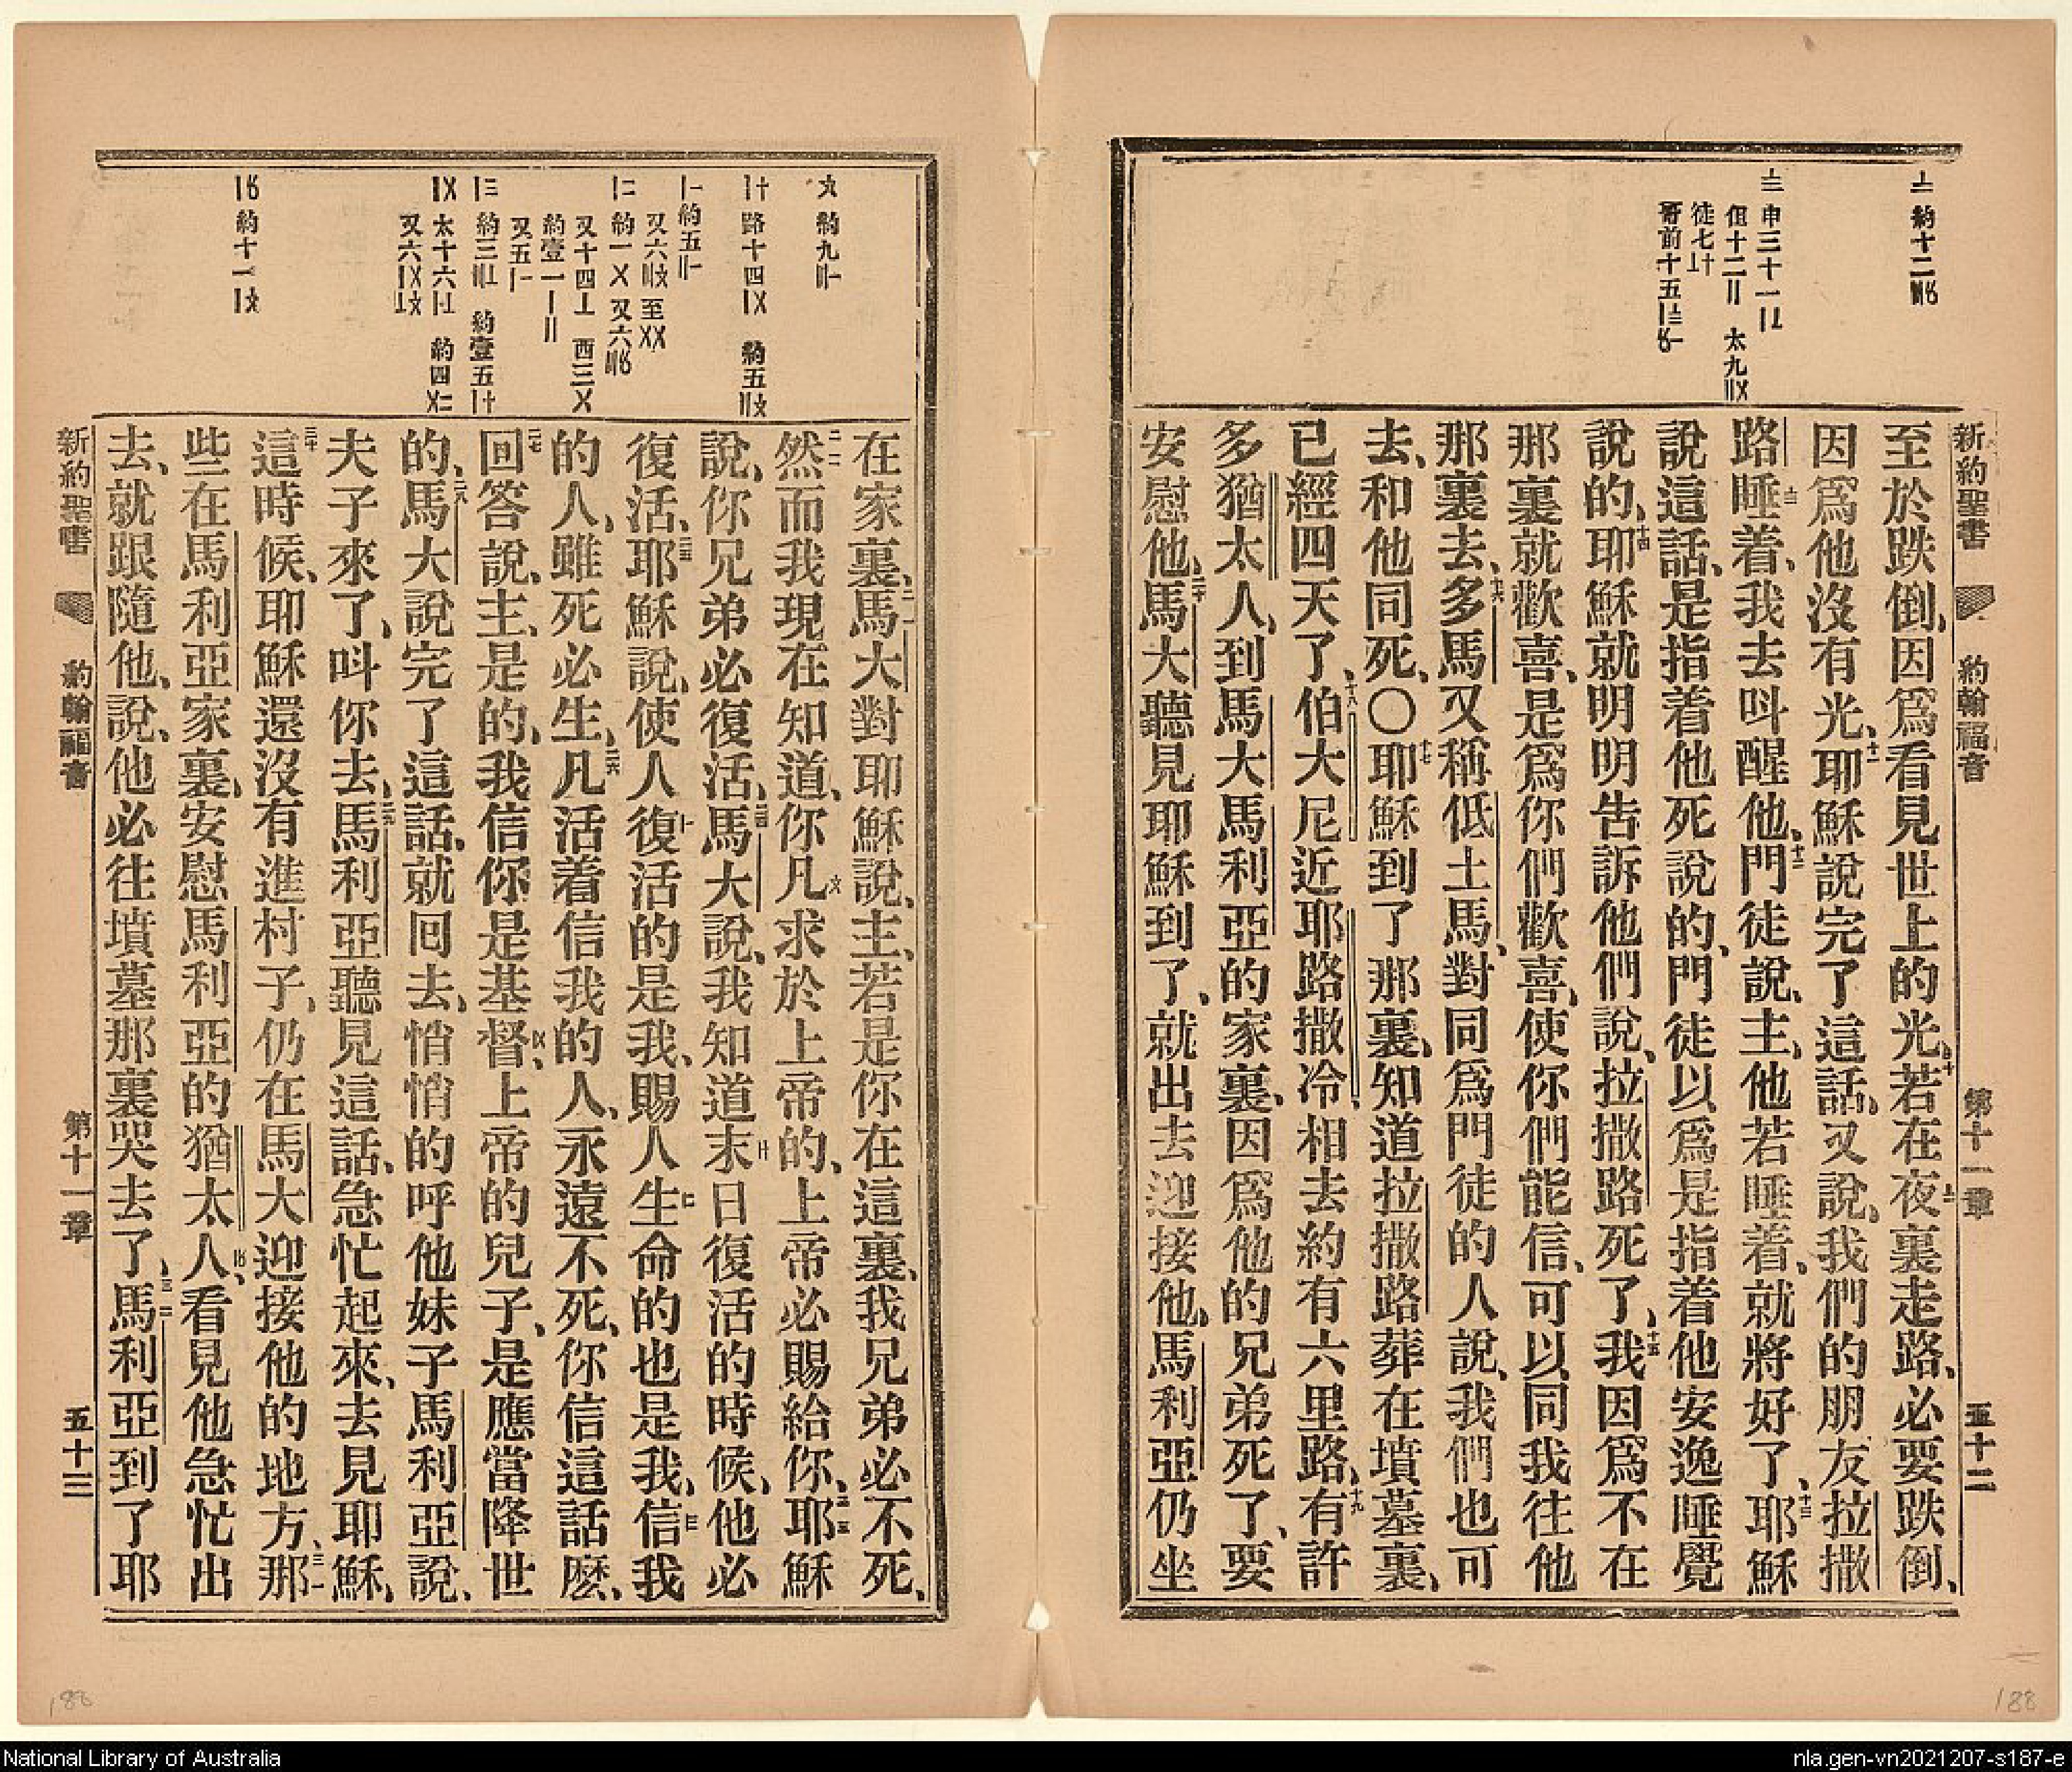 新約聖書
約翰福音
第十一章
五十二
至於跌倒、因爲看見世上的光、若在夜裏走路、必要跌倒、
因爲他沒有光、耶穌說完了這話、又說、我們的朋友拉撒
路睡着、我去呌醒他、門徒說、主、他若睡着、就將好了、耶穌
說這話、是指着他死說的、門徒以爲是指着他安逸睡覺
說的、耶穌就明明告訴他們說、拉撒路死了、我因爲不在
那裏就歡喜、是爲你們歡喜、使你們能信、可以同我往他
那裏去、多馬又稱低土馬、對同爲門徒的人說、我們也可
去、和他同死、〇耶穌到了那裏、知道拉撒路葬在墳墓裏、
已經四天了、伯大尼近耶路撒冷、相去約有六里路、有許
多猶太人、到馬大馬利亞的家裏、因爲他的兄弟死了、要
安慰他、馬大聽見耶穌到了、就出去迎接他、馬利亞仍坐
在家裏、馬大對耶穌說、主、若是你在這裏、我兄弟必不死、
然而我現在知道、你凡求於上帝的、上帝必賜給你、耶穌
說、你兄弟必復活、馬大說、我知道末日復活的時候、他必
復活、耶穌說、使人復活的是我、賜人生命的也是我、信我
的人、雖死必生、凡活着信我的人、永遠不死、你信這話麽、
回答說、主、是的、我信你是基督、上帝的兒子、是應當降世
的、馬大說完了這話、就回去、悄悄的呼他妹子馬利亞說、
夫子來了、呌你去、馬利亞聽見這話、急忙起來、去見耶穌、
這時候、耶穌還沒有進村子、仍在馬大迎接他的地方、那
些在馬利亞家裏、安慰馬利亞的猶太人、看見他急忙出
去、就跟隨他、說、他必往墳墓那裏哭去了、馬利亞到了耶
新約聖書
約翰福音
第十一章
五十三
188
188
National Library of Australia
nla.gen-vn2021207-s187-e